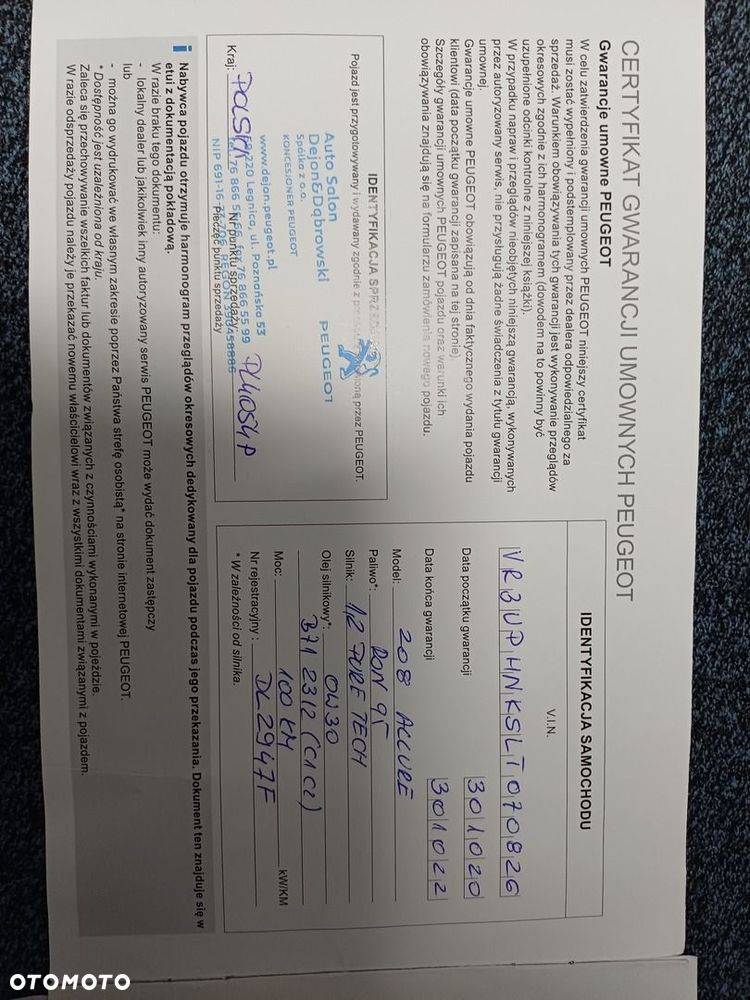 CERTYFIKAT GWARANCJI UMOWNYCH PEUGEOT
Gwarancje umowne PEUGEOT
W celu zatwierdzenia gwarancji umownych PEUGEOT niniejszy certyfikat
musi zostać wypełniony i podstemplowany przez dealera odpowiedzialnego za
sprzedaż. Warunkiem obowiązywania tych gwarancji jest wykonywanie przeglądów
okresowych zgodnie z ich harmonogramem (dowodem na to powinny być
uzupełnione odcinki kontrolne z niniejszej książki).
W przypadku napraw i przeglądów nieobjętych niniejszą gwarancją, wykonywanych
przez autoryzowany serwis, nie przysługują żadne świadczenia z tytułu gwarancji
umownej.
Gwarancje umowne PEUGEOT obowiązują od dnia faktycznego wydania pojazdu
klientowi (data początku gwarancji zapisana na tej stronie).
Szczegóły gwarancji umownych PEUGEOT pojazdu oraz warunki ich
obowiązywania znajdują się na formularzu zamówienia nowego pojazdu.
IDENTYFIKACJA
Pojazd jest przygotowywany i wydawany zgodnie z
przez PEUGEOT.
Auto Salon
Dejon&Dąbrowski
Spółka z o.o.
KONCESJONER PEUGEOT
PEUGEOT
www.dejon.peugeot.pl
220 Legnica, ul. Poznańska 53
fax 76 866 55 99
Kraj: POLSKA
Nr punktu sprzedaży: PL41054P
Pieczęć punktu sprzedaży
IDENTYFIKACJA SAMOCHODU
V.I.N.
VR3UPHNKSLT070826
Data początku gwarancji 301020
Data końca gwarancji 301022
Model: 208 ALLURE
Paliwo*: RON 95
Silnik: 1,2 PURE TECH
Olej silnikowy*: 0W30
B71 2312 (C1 C2)
Moc: 100 KM kW/KM
Nr rejestracyjny: DL 2947F
* W zależności od silnika.
i
Nabywca pojazdu otrzymuje harmonogram przeglądów okresowych dedykowany dla pojazdu podczas jego przekazania. Dokument ten znajduje się w
etui z dokumentacją pokładową.
W razie braku tego dokumentu:
- lokalny dealer lub jakikolwiek inny autoryzowany serwis PEUGEOT może wydać dokument zastępczy
lub
- można go wydrukować we własnym zakresie poprzez Państwa strefę osobistą* na stronie internetowej PEUGEOT.
* Dostępność jest uzależniona od kraju.
Zaleca się przechowywanie wszelkich faktur lub dokumentów związanych z czynnościami wykonanymi w pojeździe.
W razie odsprzedaży pojazdu należy je przekazać nowemu właścicielowi wraz z wszystkimi dokumentami związanymi z pojazdem.
OTOMOTO